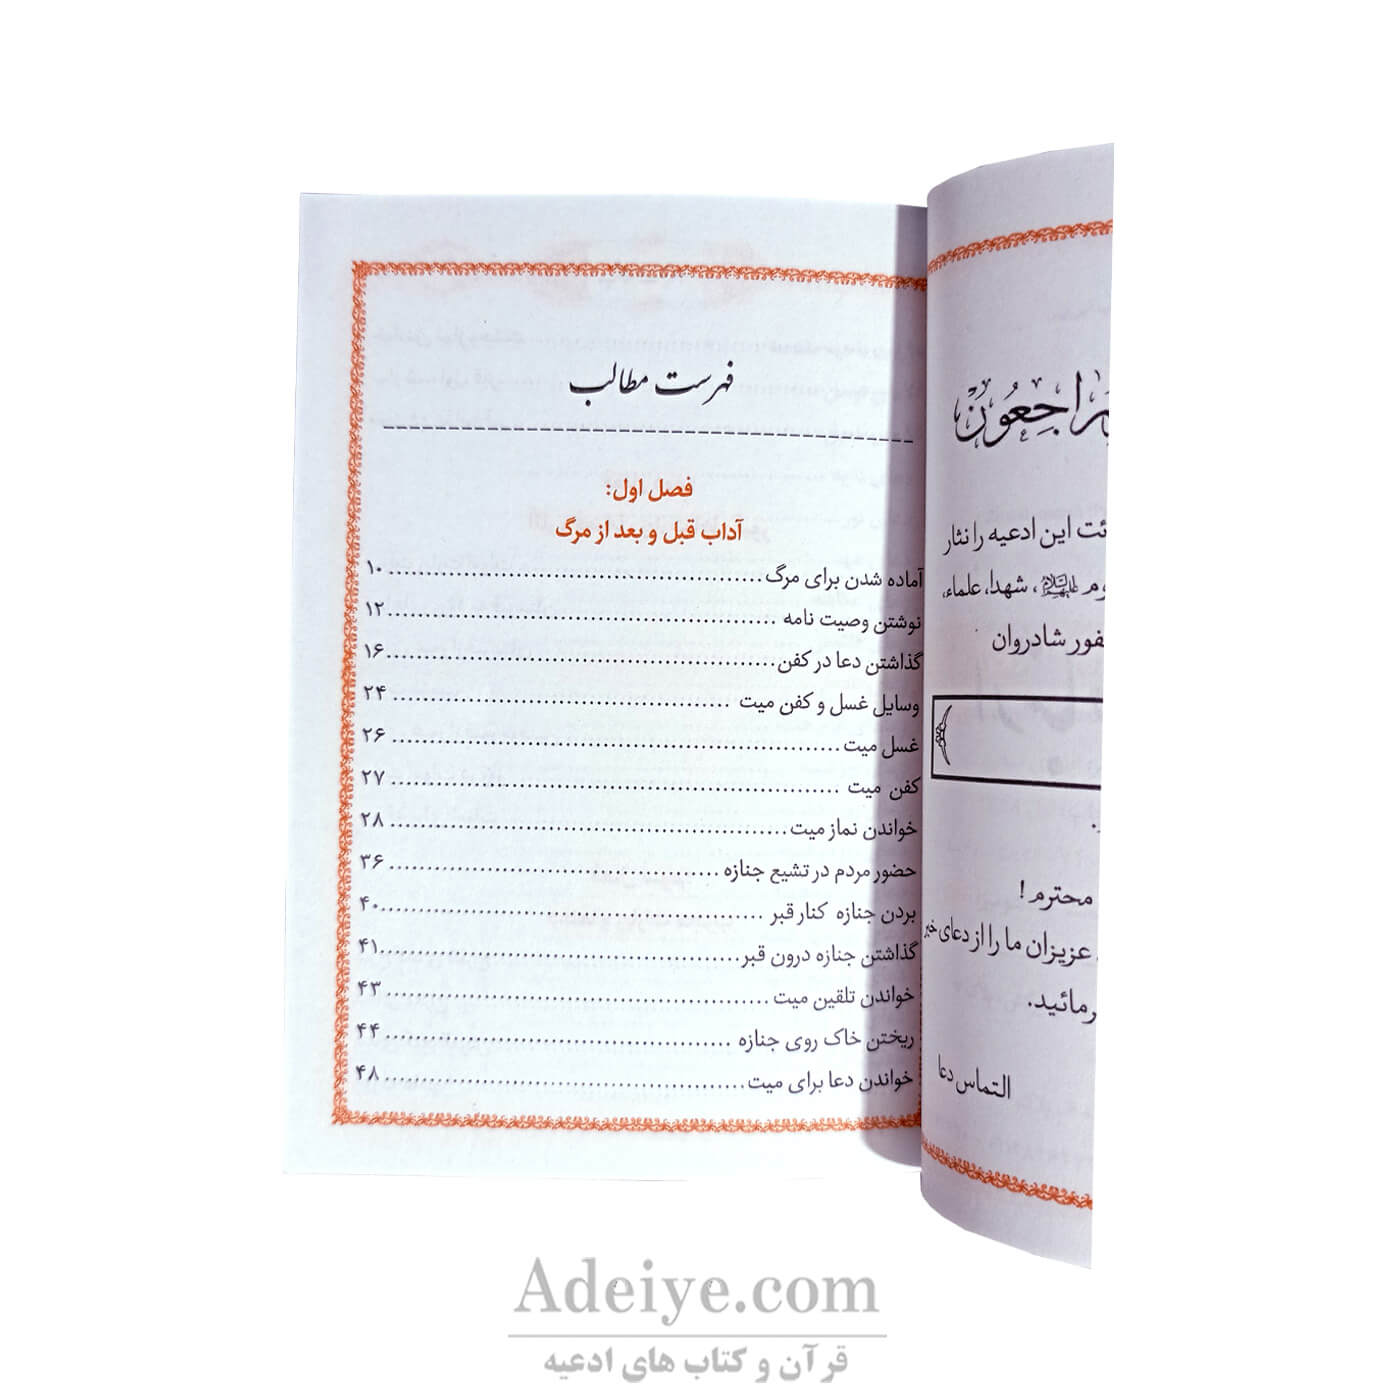 فهرست مطالب
فصل اول:
آداب قبل و بعد از مرگ
آماده شدن برای مرگ ۱۰
نوشتن وصیت نامه ۱۲
گذاشتن دعا در کفن ۱۶
وسایل غسل و کفن میت ۲۴
غسل میت ۲۶
کفن میت ۲۷
خواندن نماز میت ۲۸
حضور مردم در تشیع جنازه ۳۶
بردن جنازه کنار قبر ۴۰
گذاشتن جنازه درون قبر ۴۱
خواندن تلقین میت ۴۳
ریختن خاک روی جنازه ۴۴
خواندن دعا برای میت ۴۸
راجِعُونَ
این ادعیه را نثار
شهدا، علماء،
شادروان
محترم !
عزیزان ما را از دعای خیر
التماس دعا
Adeiye.com
قرآن و کتاب های ادعیه